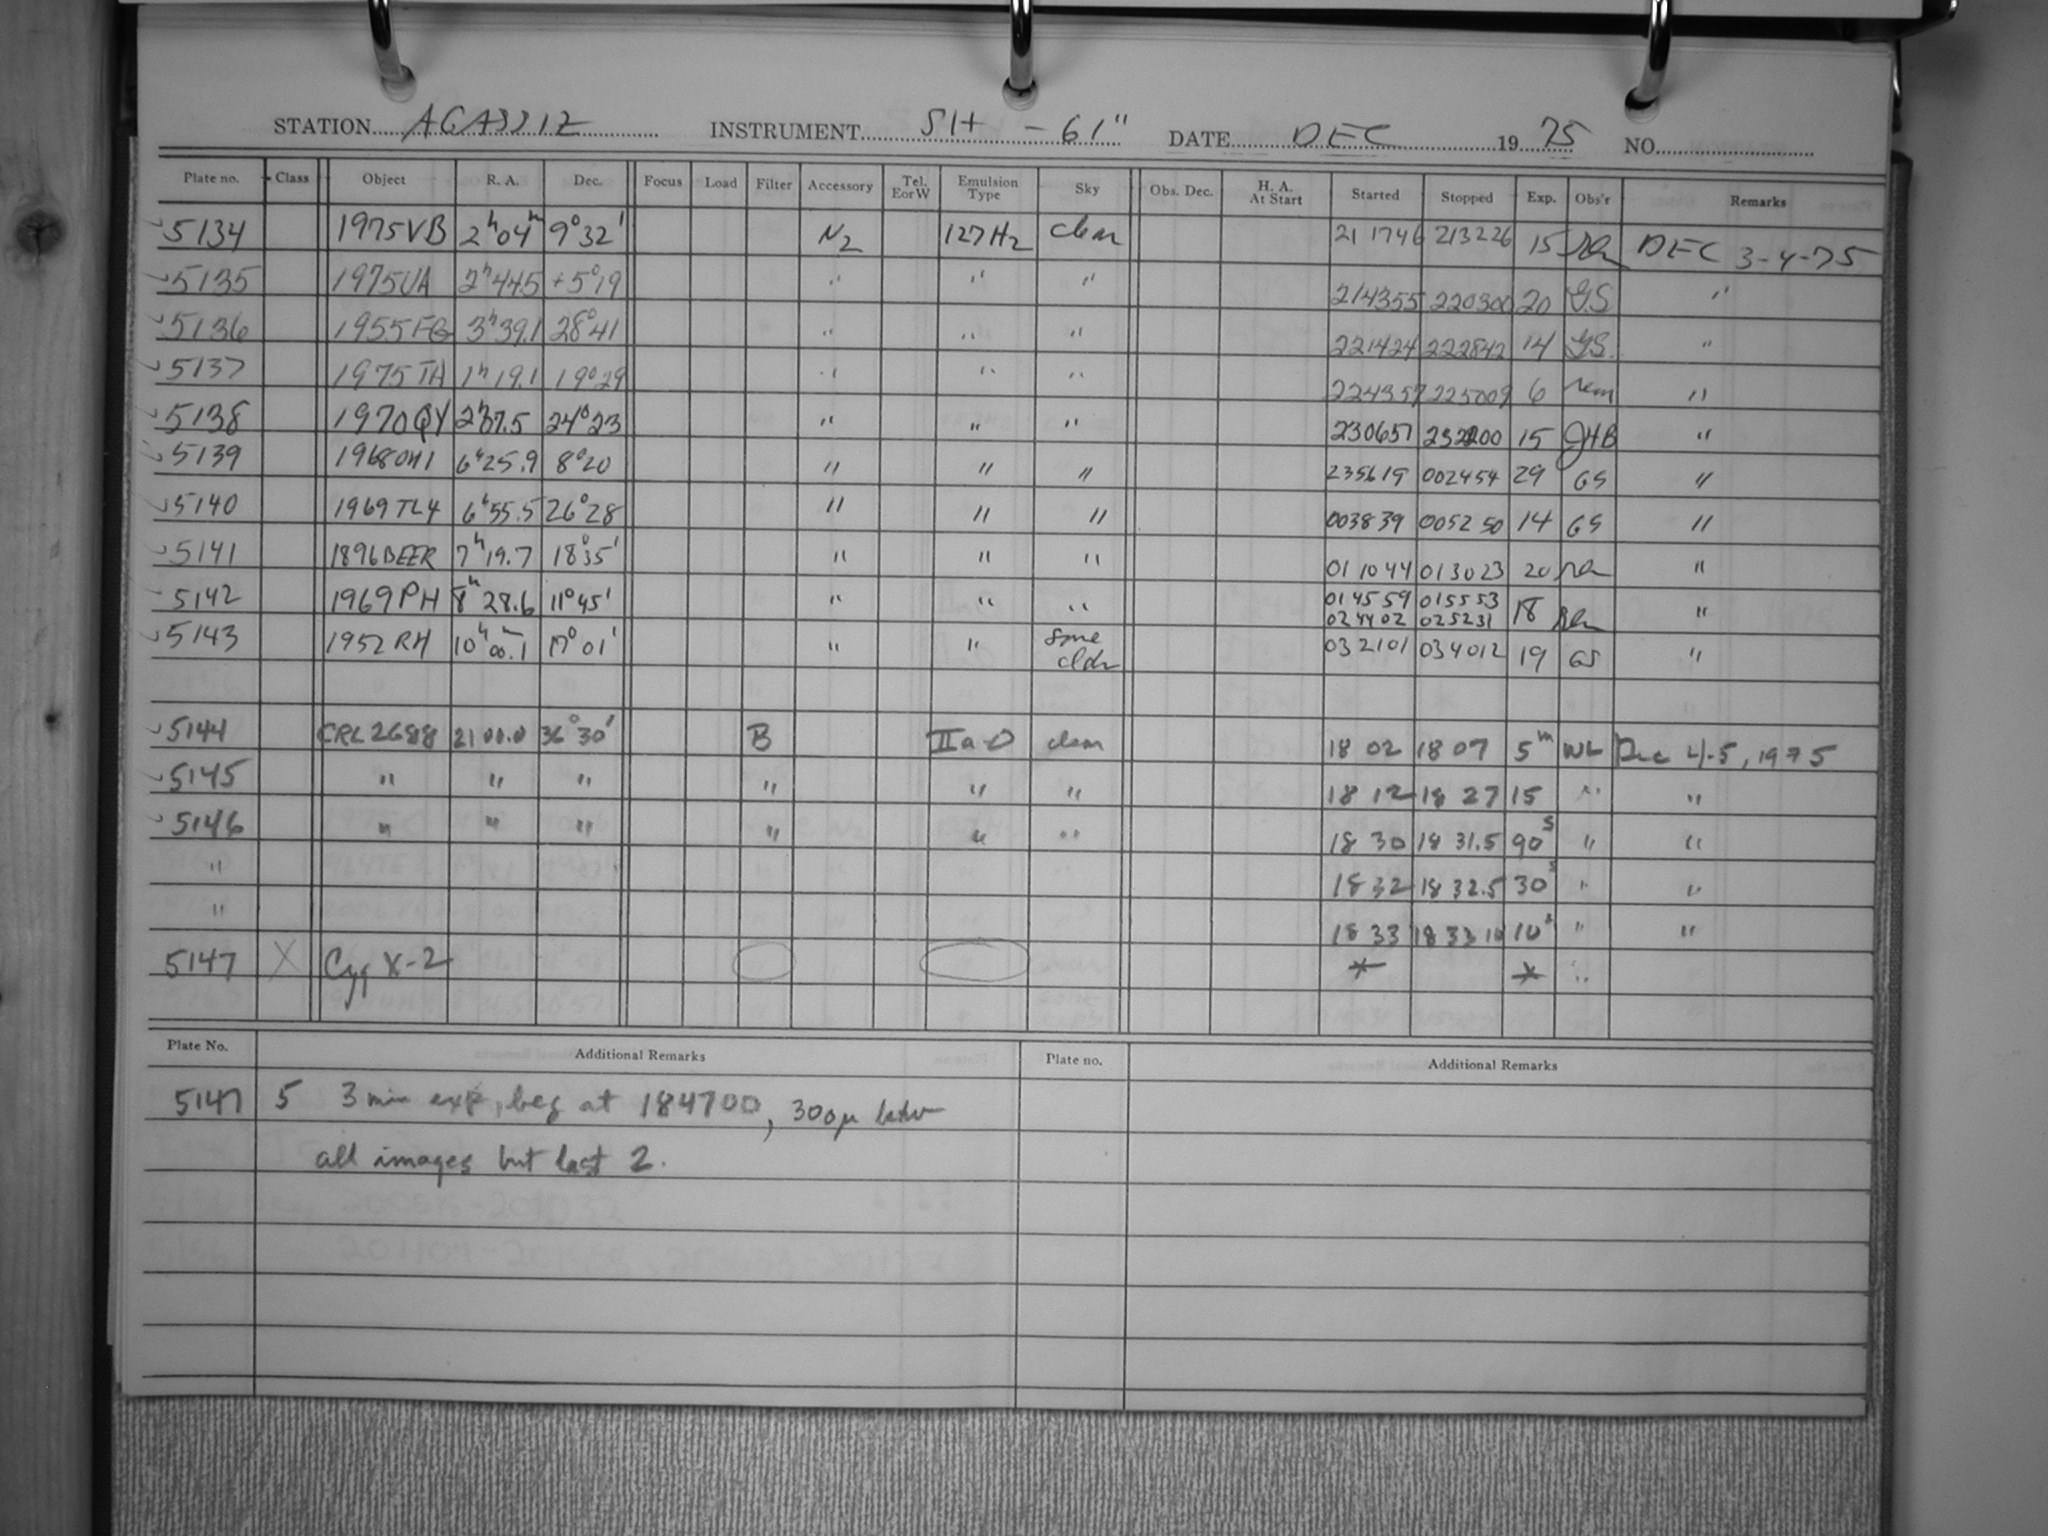 STATION AGASSIZ INSTRUMENT SH - 61" DATE DEC 19 75 NO.
Plate no. Class Object R. A. Dec. Focus Load Filter Accessory Tel. E or W Emulsion Type Sky Obs. Dec. H. A. At Start Started Stopped Exp. Obs'r Remarks
5134 1975VB 2h04m 9°32' N2 127H2 clear 211746 213226 15 DEC 3-4-75
5135 1975UA 2h44.5 +5°19 " " " 214355 220300 20 G.S "
5136 1955FB 3h39.1 28°41 " " " 221424 222842 14 G.S. "
5137 1975TH 1h19.1 19°29 " " " 224357 225009 6 "
5138 1970QY 2h37.5 24°23 " " " 230657 232200 15 JHB "
5139 1968OH1 6h25.9 8°20 " " " 235619 002454 29 GS "
5140 1969TL4 6h55.5 26°28 " " " 003839 005250 14 GS "
5141 1896BEER 7h19.7 18°35' " " " 011044 013023 20 "
5142 1969PH 8h28.6 11°45' " " " 014559 015553 18 "
024402 025231
5143 1952RH 10h00.1m 17°01' " " some 032101 034012 19 GS "
5144 CRL2688 21 00.0 36°30' B IIa-O clear 18 02 18 07 5m WL Dec 4-5, 1975
5145 " " " " " " 18 12 18 27 15 " "
5146 " " " " " " 18 30 18 31.5 90s " "
" 18 32 18 32.5 30s " "
" 18 33 18 33 10 10s " "
5147 X Cyg X-2 * * "
Plate No. Additional Remarks Plate no. Additional Remarks
5147 5 3 min exp, beg at 184700, 300μ betw
all images but last 2.